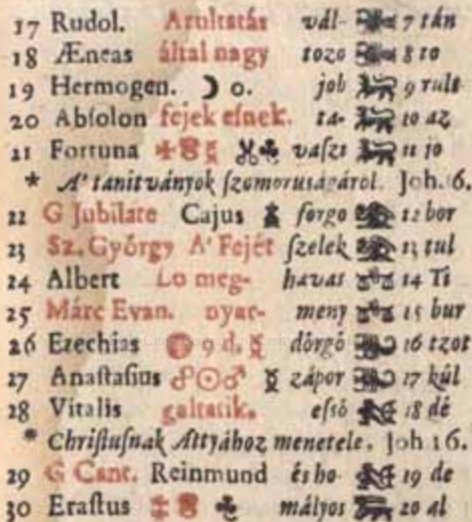 17 Rudol. Árultatás vál- 7 tán
18 Æneas által nagy tozo 8 to
19 Hermogen. ☽ 0. job 9 rult
20 Abſolon fejek eſnek. ta- 10 az
21 Fortuna vaſzt 11 jo
* A' tanitványok ſzomoruságárol. Joh. 6.
22 G Jubilate Cajus forgo 12 bor
23 Sz. György A' Fejét ſzelek 13 tul
24 Albert Lo meg- havas 14 Ti
25 Márc Evan. nyar- meny 15 bur
26 Ezechias 9 d. ☿ dörgö 16 tzot
27 Anaſtaſius ☍☉♂ ☿ zápor 17 kúl
28 Vitalis galtatik. eſsö 18 dé
* Chriſtuſnak Attyához menetele. Joh 16.
29 G Cant. Reinmund és ho- 19 de
30 Eraſtus mályos 20 al